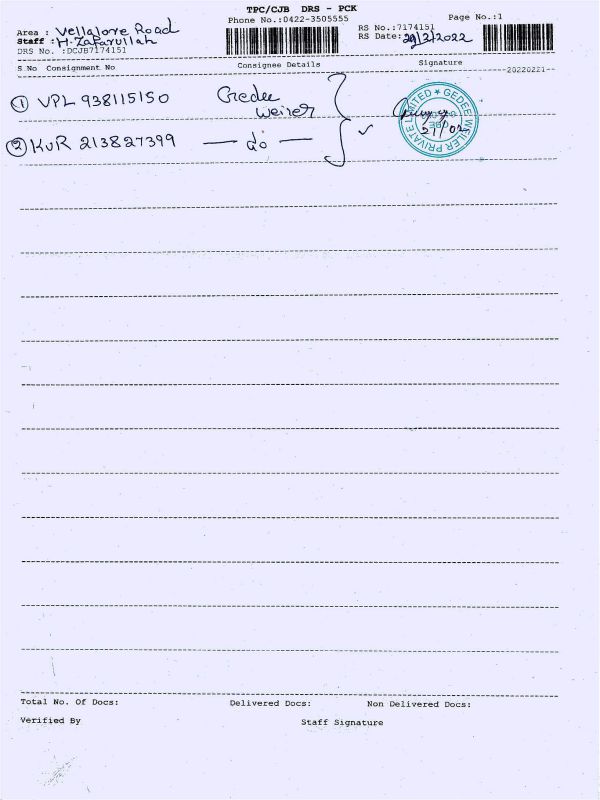 TPC/CJB DRS - PCK
Phone No.:0422-3505555
Page No.:1
Area : Vellalore Road
Staff : H. Zafarullah
DRS No. :DCJB7174151
RS No.:7174151
RS Date: 2/2022
S No Consignment No Consignee Details Signature
-20220221-
① VPL 938115150 Gedee
Weiler
② KVR 213827399 — do —
GEDEE WEILER PRIVATE LIMITED ★
21/02
Total No. Of Docs: Delivered Docs: Non Delivered Docs:
Verified By Staff Signature